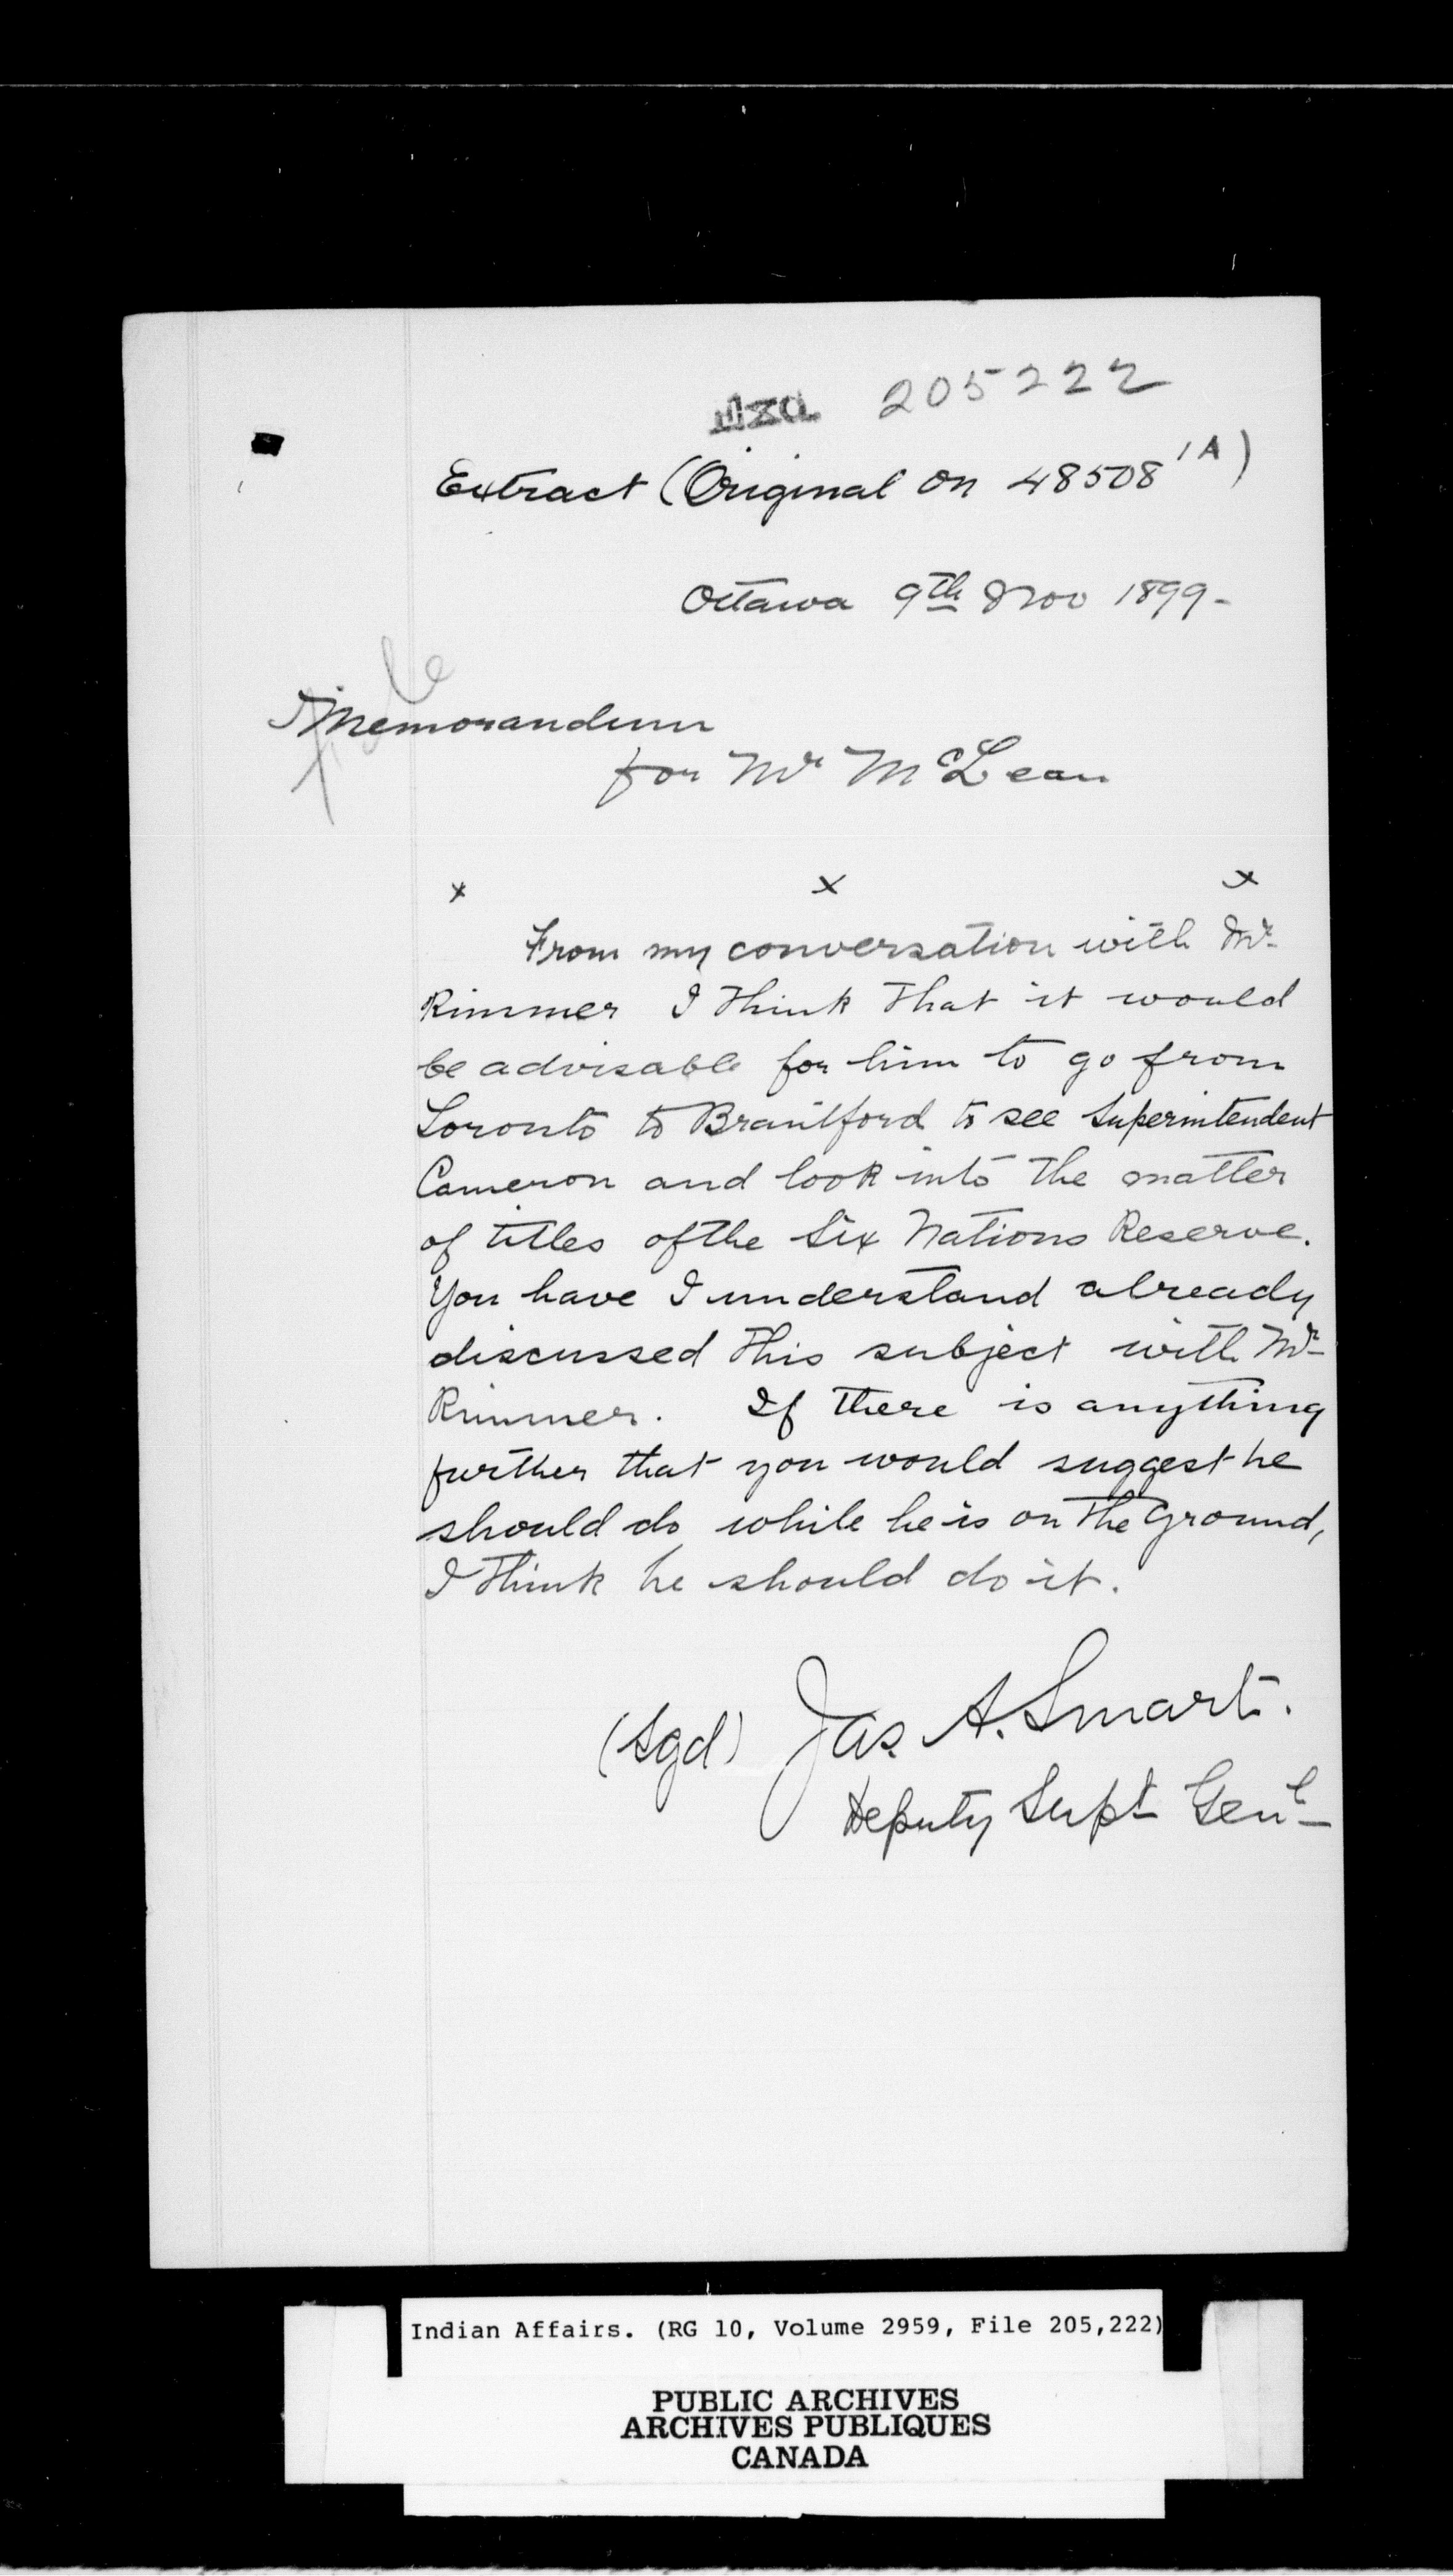 205222
Extract (Original on 48508 1A)
Ottawa 9th Nov 1899-
Memorandum
for Mr McLean
x x x
From my conversation with Mr
Rimmer I think that it would
be advisable for him to go from
Toronto to Brantford to see Superintendent
Cameron and look into the matter
of titles of the Six Nations Reserve.
You have I understand already
discussed this subject with Mr
Rimmer. If there is anything
further that you would suggest he
should do while he is on the ground,
I think he should do it.
(Sgd) Jas. A. Smart.
Deputy Supt Genl
Indian Affairs. (RG 10, Volume 2959, File 205,222)
PUBLIC ARCHIVES
ARCHIVES PUBLIQUES
CANADA